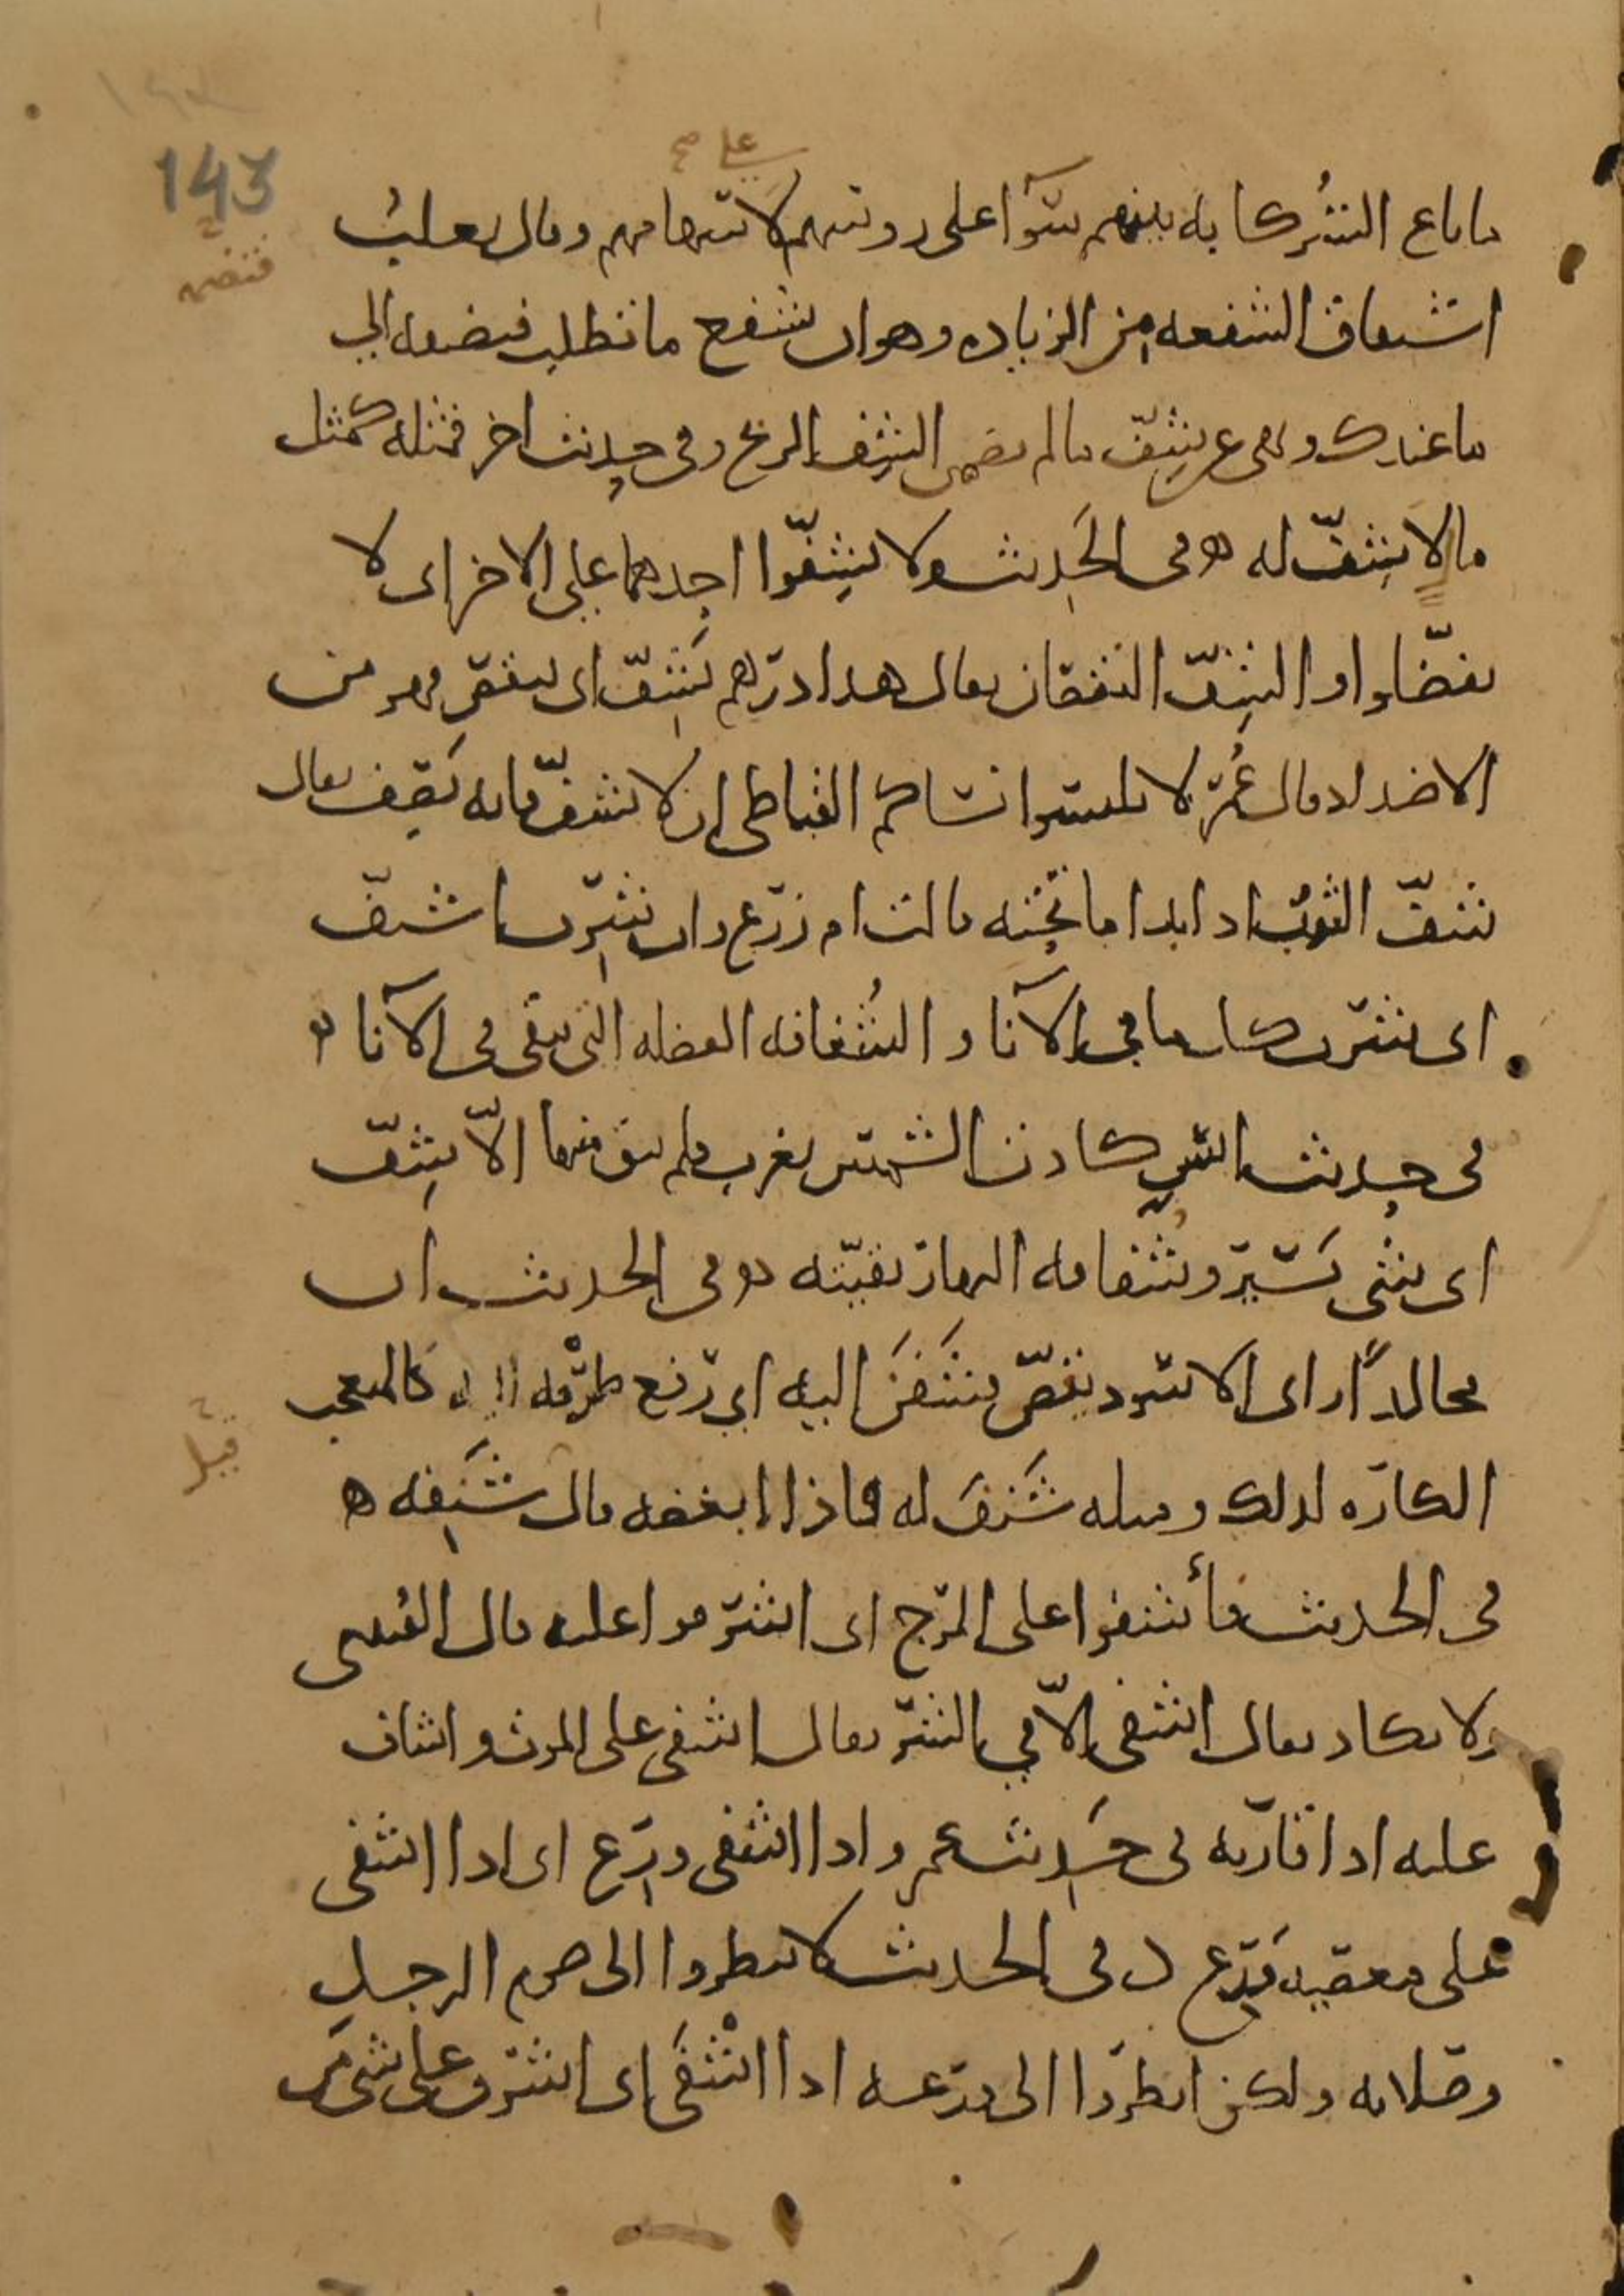 143
على صح
ما باع الشركا به بينهم سوآ على روسهم لا سهامهم وقال ثعلب
فتضمه
اشتقاق الشفعه من الزياده وهو ان يشفع ما تطلب فيضمه الى
ما عندك ونهى عن شف ما لم يضمن الشف الربح وفي حديث اخر فمثله كمثل
ما لا شف له ه في الحديث ولا تشفوا احدهما على الاخر اى لا
تفضلوا والشف النقصان يقال هذا درهم يشف اى ينقص فهو من
الاضداد وقال عمر لا تلبسوا نساكم القباطي ان لا تشف فانه يصف يقال
شف الثوب اذا بدا ما تحته قالت ام زرع وان شرب اشتف
اى شرب كل ما في الآنا والشفافه الفضله التي تبقى في الآنا ه
في حديث انس كادت الشمس تغرب فلم يبق منها الا شف
اى شى يسير وشفافه النهار بقيته ه وفي الحديث ان
مجالدا راى الاسود يقص فشنف اليه اي رفع طرفه اليه كالمتعجب
قيل
الكاره لذلك ومثله شنف له فاذا ابغضه قال شنفه ه
في الحديث فأشفوا على المرج اى اشرفوا عليه قال القتيبي
ولا يكاد يقال اشفى الا في الشر يقال اشفى على الموت واشاف
عليه اذا قاربه في حديث عمر واذا اشفى ورع اى اذا اشفى
على معصيه ورع في الحديث لا تنظروا الى صوم الرجل
وصلاته ولكن انظروا الى ورعه اذا اشفى اى اشرف على شى من